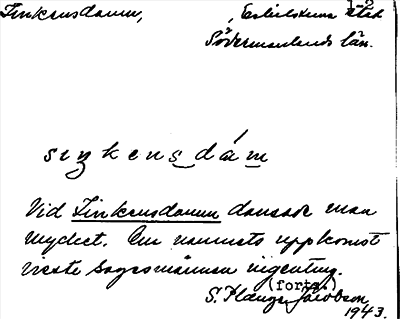 Finkensdamm, , Eskilstuna stad
1-2
Södermanlands län.
Vid Finkensdamm dansade man
mycket. Om namnets uppkomst
visste sagesmannen ingenting.
(forts.)
S. Plange Jacobson
1943.